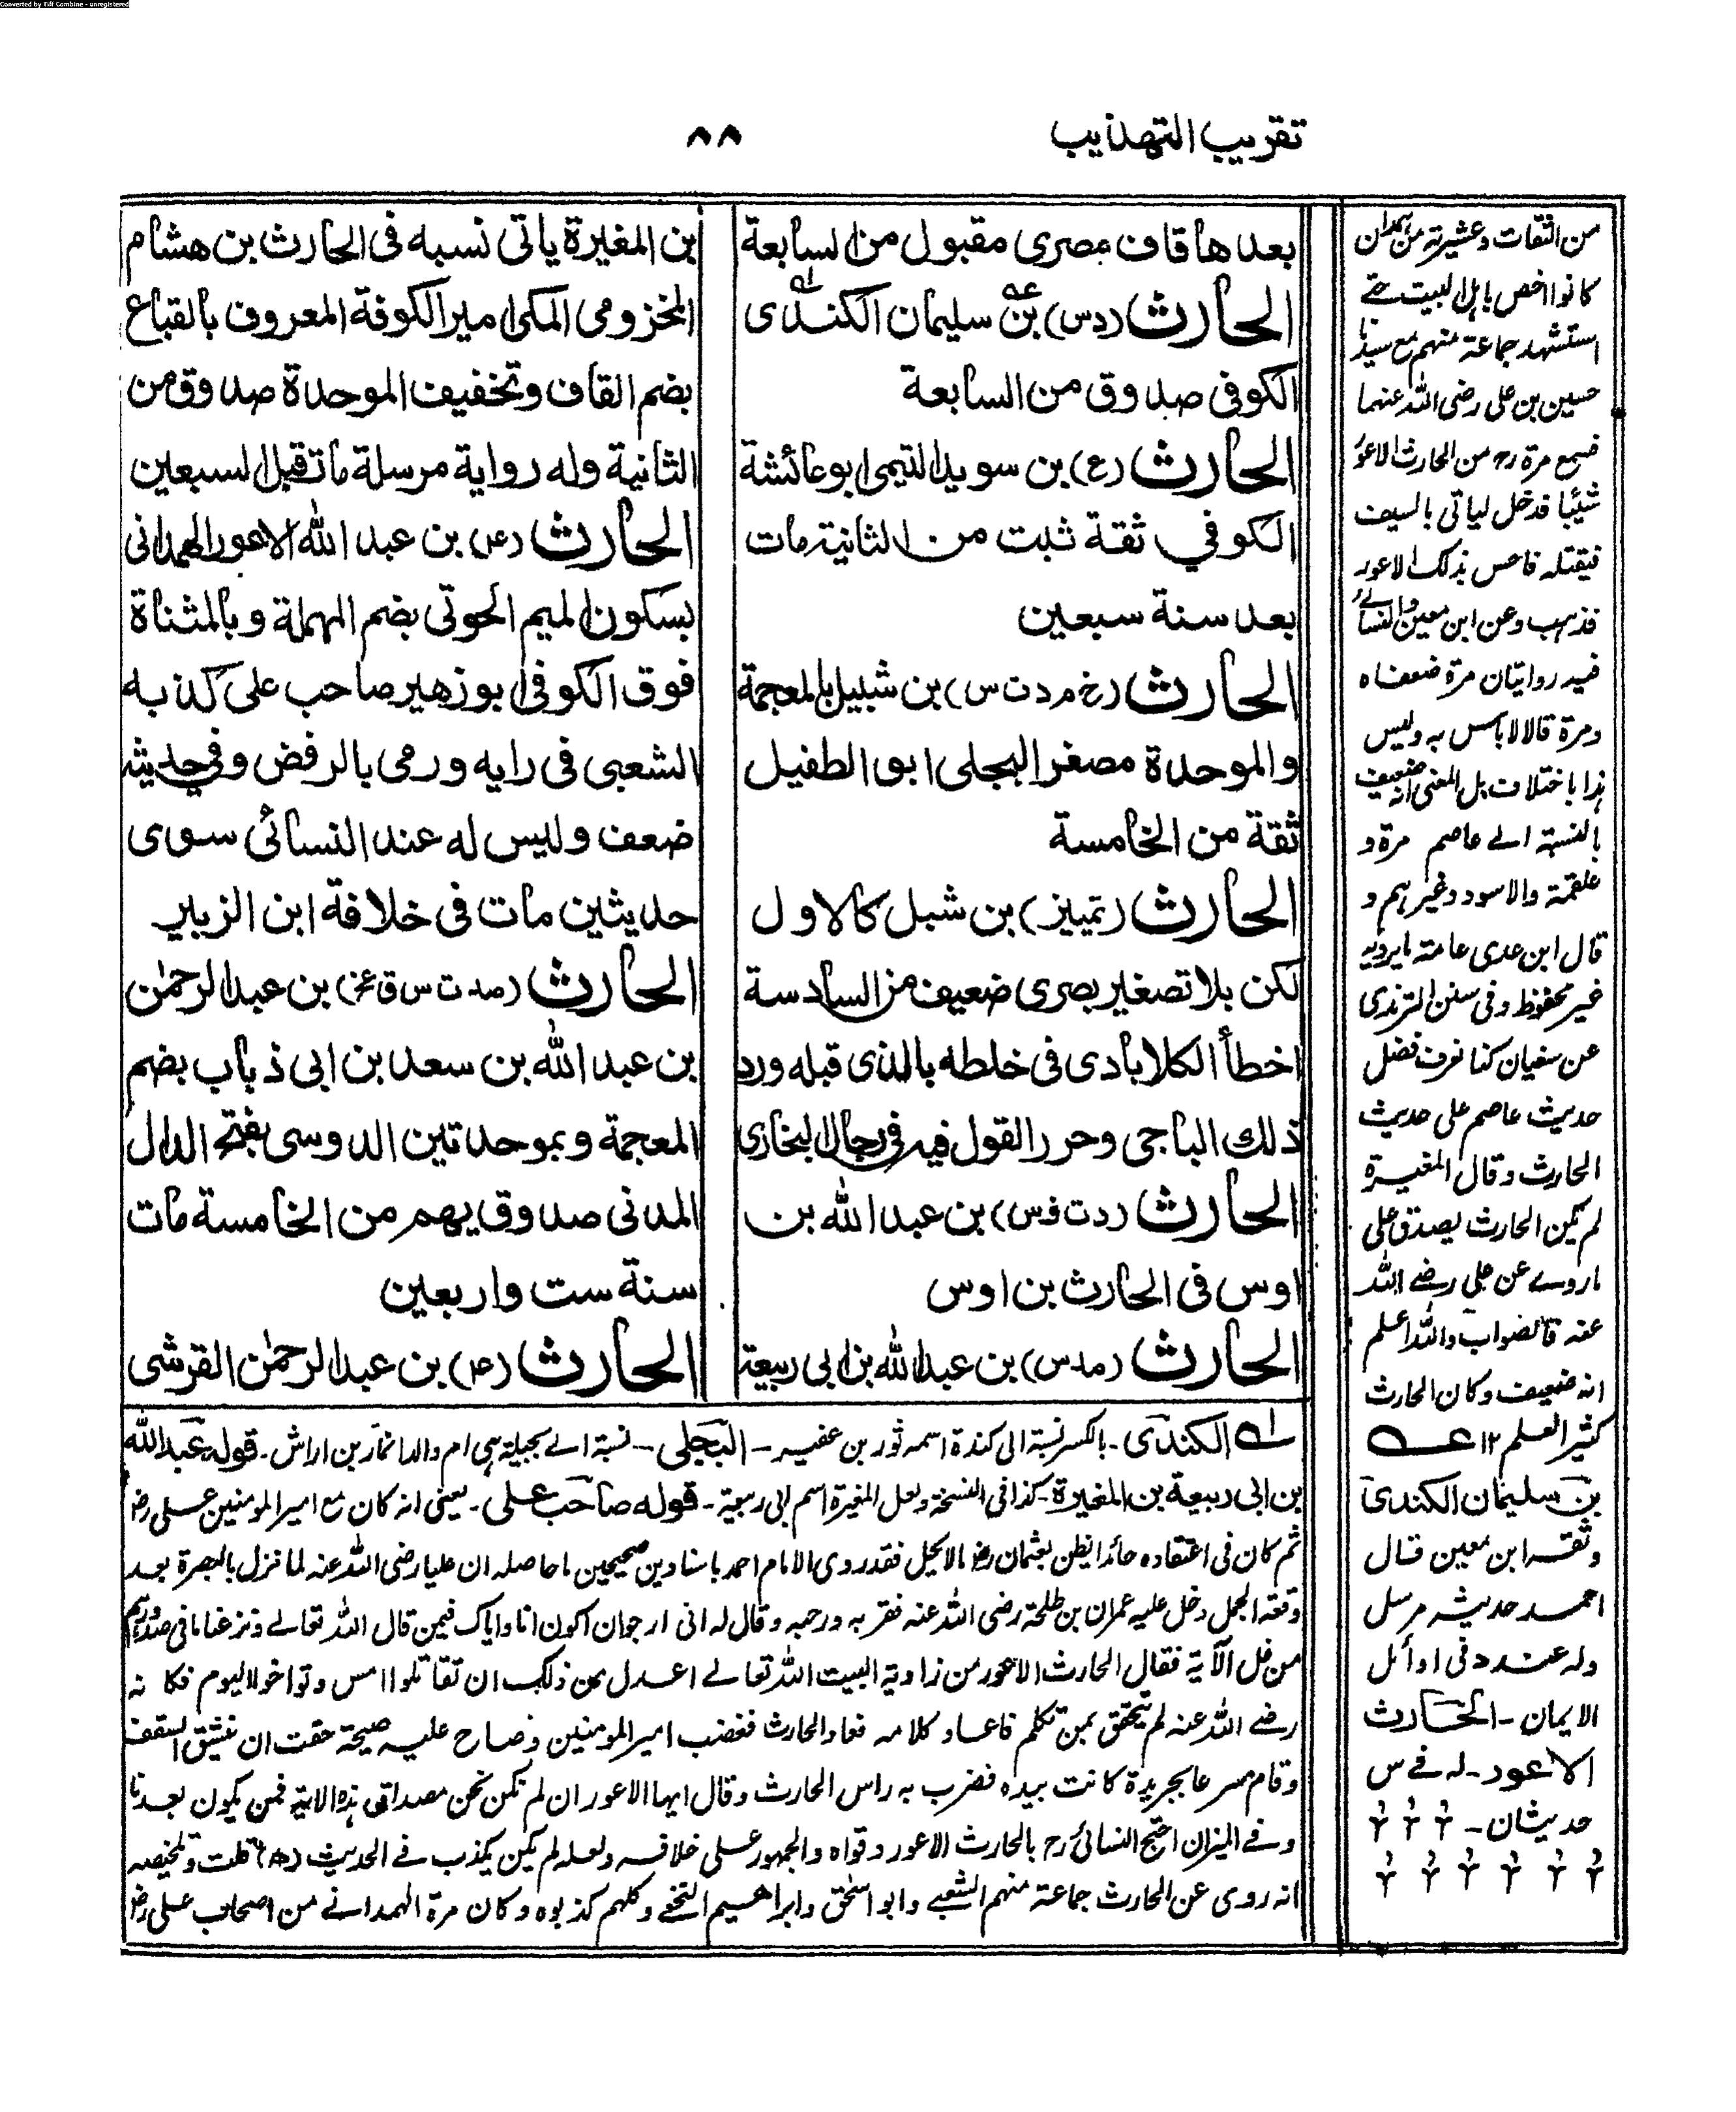 Converted by Tiff Combine - unregistered
تقريب التهذيب
٨٨
بعدها قاف مصرى مقبول من السابعة
الحارث (د س) بن سليمان الكندى
الكوفى صدوق من السابعة
الحارث (ع) بن سويد التيمى ابو عائشة
الكوفي ثقة ثبت من الثانية مات
بعد سنة سبعين
الحارث (خ م د ت س) بن شبيل بالمعجمة
والموحدة مصغر البجلى ابو الطفيل
ثقة من الخامسة
الحارث (تمييز) بن شبل كالاول
لكن بلا تصغير بصرى ضعيف من السادسة
اخطأ الكلاباذى فى خلطه بالذى قبله ورد
ذلك الباجى وحرر القول فيه فى رجال البخارى
الحارث (د ت س) بن عبد الله بن
اوس فى الحارث بن اوس
الحارث (مد س) بن عبد الله بن ابى ربيعة
بن المغيرة ياتى نسبه فى الحارث بن هشام
المخزومى المكى امير الكوفة المعروف بالقباع
بضم القاف وتخفيف الموحدة صدوق من
الثانية وله رواية مرسلة مات قبل السبعين
الحارث (عه) بن عبد الله الاعور الهمدانى
بسكون الميم الحوتى بضم المهملة وبالمثناة
فوق الكوفى ابو زهير صاحب على كذبه
الشعبى فى رايه ورمى بالرفض وفى حديثه
ضعف وليس له عند النسائى سوى
حديثين مات فى خلافة ابن الزبير
الحارث (مد ت س ق عخ) بن عبد الرحمٰن
بن عبد الله بن سعد بن ابى ذباب بضم
المعجمة وبموحدتين الدوسى بفتح الدال
المدنى صدوق يهم من الخامسة مات
سنة ست واربعين
الحارث (عه) بن عبد الرحمٰن القرشى
له الكندى ـ بالكسر نسبة الى كندة اسمه ثور بن عفير ـ البجلى ـ نسبة الے بجيلة هى ام ولد انمار بن اراش ـ قوله عبد الله
بن ابى ربيعة بن المغيرة ـ كذا فى النسخة ولعل المغيرة اسم ابى ربيعة ـ قوله صاحب على ـ يعنى انه كان مع امير المومنين على رض
ثم كان فى اعتقاده حائدا يظن بعثمان رض ما لا يحل فقد روى الامام احمد باسنادين صحيحين ما حاصله ان عليا رضى الله عنه لما نزل بالبصرة بعد
وقعة الجمل دخل عليه عمران بن طلحة رضى الله عنه فقر به ورحبه وقال له انى ارجو ان اكون انا واياك فيمن قال الله تعالے ونزعنا ما فى صدورهم
من غل الآية فقال الحارث الاعور من زاوية البيت الله تعالے اعدل من ذلك ان تقاتلوا امس وتواخوا اليوم فكانه
رضے الله عنه لم يتحقق بمن تكلم فاعاد كلامه فعاد الحارث فغضب امير المومنين وصاح عليه صيحة حقت ان ينشق السقف
وقام مسرعا بجريدة كانت بيده فضرب به راس الحارث وقال ايها الاعور ان لم نكن نحن مصداقى هذه الاية فمن يكون بعدنا
وفے الميزان احتج النسائى رح بالحارث الاعور وقواه والجمهور على خلافه ولعله لم يكن يكذب فے الحديث قلت وتلخيصه
انه روى عن الحارث جماعة منهم الشعبے وابو اسحٰق وابراهيم النخعے وكلهم كذبوه وكان مرة الهمدانے من اصحاب على رض
من الثقات وعشيرته من همدان
كانوا اخص باهل البيت حتے
استشهد جماعة منهم مع سيدنا
حسين بن على رضى الله عنهما
فسمع مرة رح من الحارث الاعور
شيئا فدخل لياتى بالسيف
فيقتله فاحس بذلك الاعور
فذهب وعن ابن معين والنسائے
فيه روايتان مرة ضعفاه
ومرة قالا لا باس به وليس
هذا باختلاف بل المعنى انه ضعيف
بالنسبة الے عاصم مرة و
علقمة والاسود وغيرهم و
قال ابن عدى عامة ما يرويه
غير محفوظ وفى سنن الترمذى
عن سفيان كنا نعرف فضل
حديث عاصم على حديث
الحارث وقال المغيرة
لم يكن الحارث يصدق على
ما روے عن على رضے الله
عنه فالصواب والله اعلم
انه ضعيف وكان الحارث
كثير العلم ١٢ عه
بن سليمان الكندى
وثقه ابن معين قال
احمد حديثه مرسل
وله عند د فى اوائل
الايمان ـ الحارث
الاعور ـ له فے س
حديثان ـ